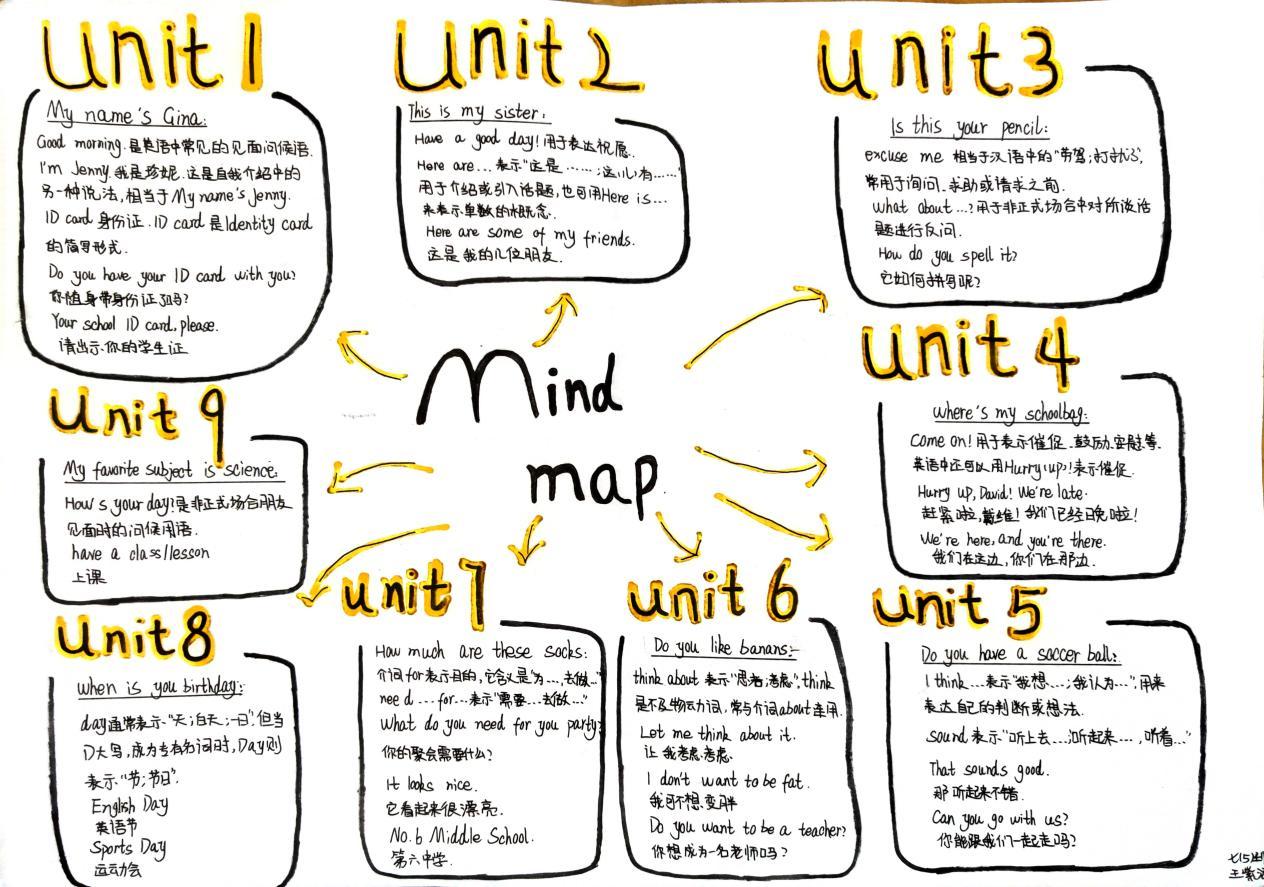 unit 1
My name's Gina:
Good morning.是英语中常见的见面问候语.
I'm Jenny.我是珍妮.这是自我介绍中的
另一种说法,相当于My name's Jenny.
ID card 身份证.ID card 是Identity card
的简写形式.
Do you have your ID card with you?
你随身带身份证了吗?
Your school ID card, please.
请出示你的学生证
unit 2
This is my sister:
Have a good day!用于表达祝愿.
Here are...表示"这是……;这儿有……"
用于介绍或引入话题,也可用Here is...
来表示单数的概念.
Here are some of my friends.
这是我的几位朋友.
unit 3
Is this your pencil:
excuse me 相当于汉语中的"劳驾;打扰",
常用于询问.求助或请求之前.
what about...?用于非正式场合中对所谈话
题进行反问.
How do you spell it?
它如何拼写呢?
Mind
map
unit 4
Where's my schoolbag:
Come on!用于表示催促.鼓励.安慰等.
英语中还可以用Hurry(up)!表示催促.
Hurry up, David! We're late.
赶紧啦,戴维!我们已经晚啦!
We're here, and you're there.
我们在这边,你们在那边.
unit 9
My favorite subject is science:
How's your day?是非正式场合朋友
见面时的问候用语.
have a class/lesson
上课
unit 8
when is you birthday:
day通常表示"天;白天;一日".但当
D大写,成为专有名词时,Day则
表示"节;节日".
English Day
英语节
Sports Day
运动会
unit 7
How much are these socks:
介词for表示目的,它含义是"为...,去做..."
need...for...表示"需要...去做..."
What do you need for you party?
你的聚会需要什么?
It looks nice.
它看起来很漂亮.
No.6 Middle School.
第六中学.
unit 6
Do you like banans:
think about 表示"思考;考虑",think
是不及物动词,常与介词about连用.
Let me think about it.
让我考虑考虑.
I don't want to be fat.
我可不想变胖
Do you want to be a teacher?
你想成为一名老师吗?
unit 5
Do you have a soccer ball:
I think...表示"我想...;我认为...",用来
表达自己的判断或想法.
sound 表示"听上去...;听起来...,听着..."
That sounds good.
那听起来不错.
Can you go with us?
你能跟我们一起走吗?